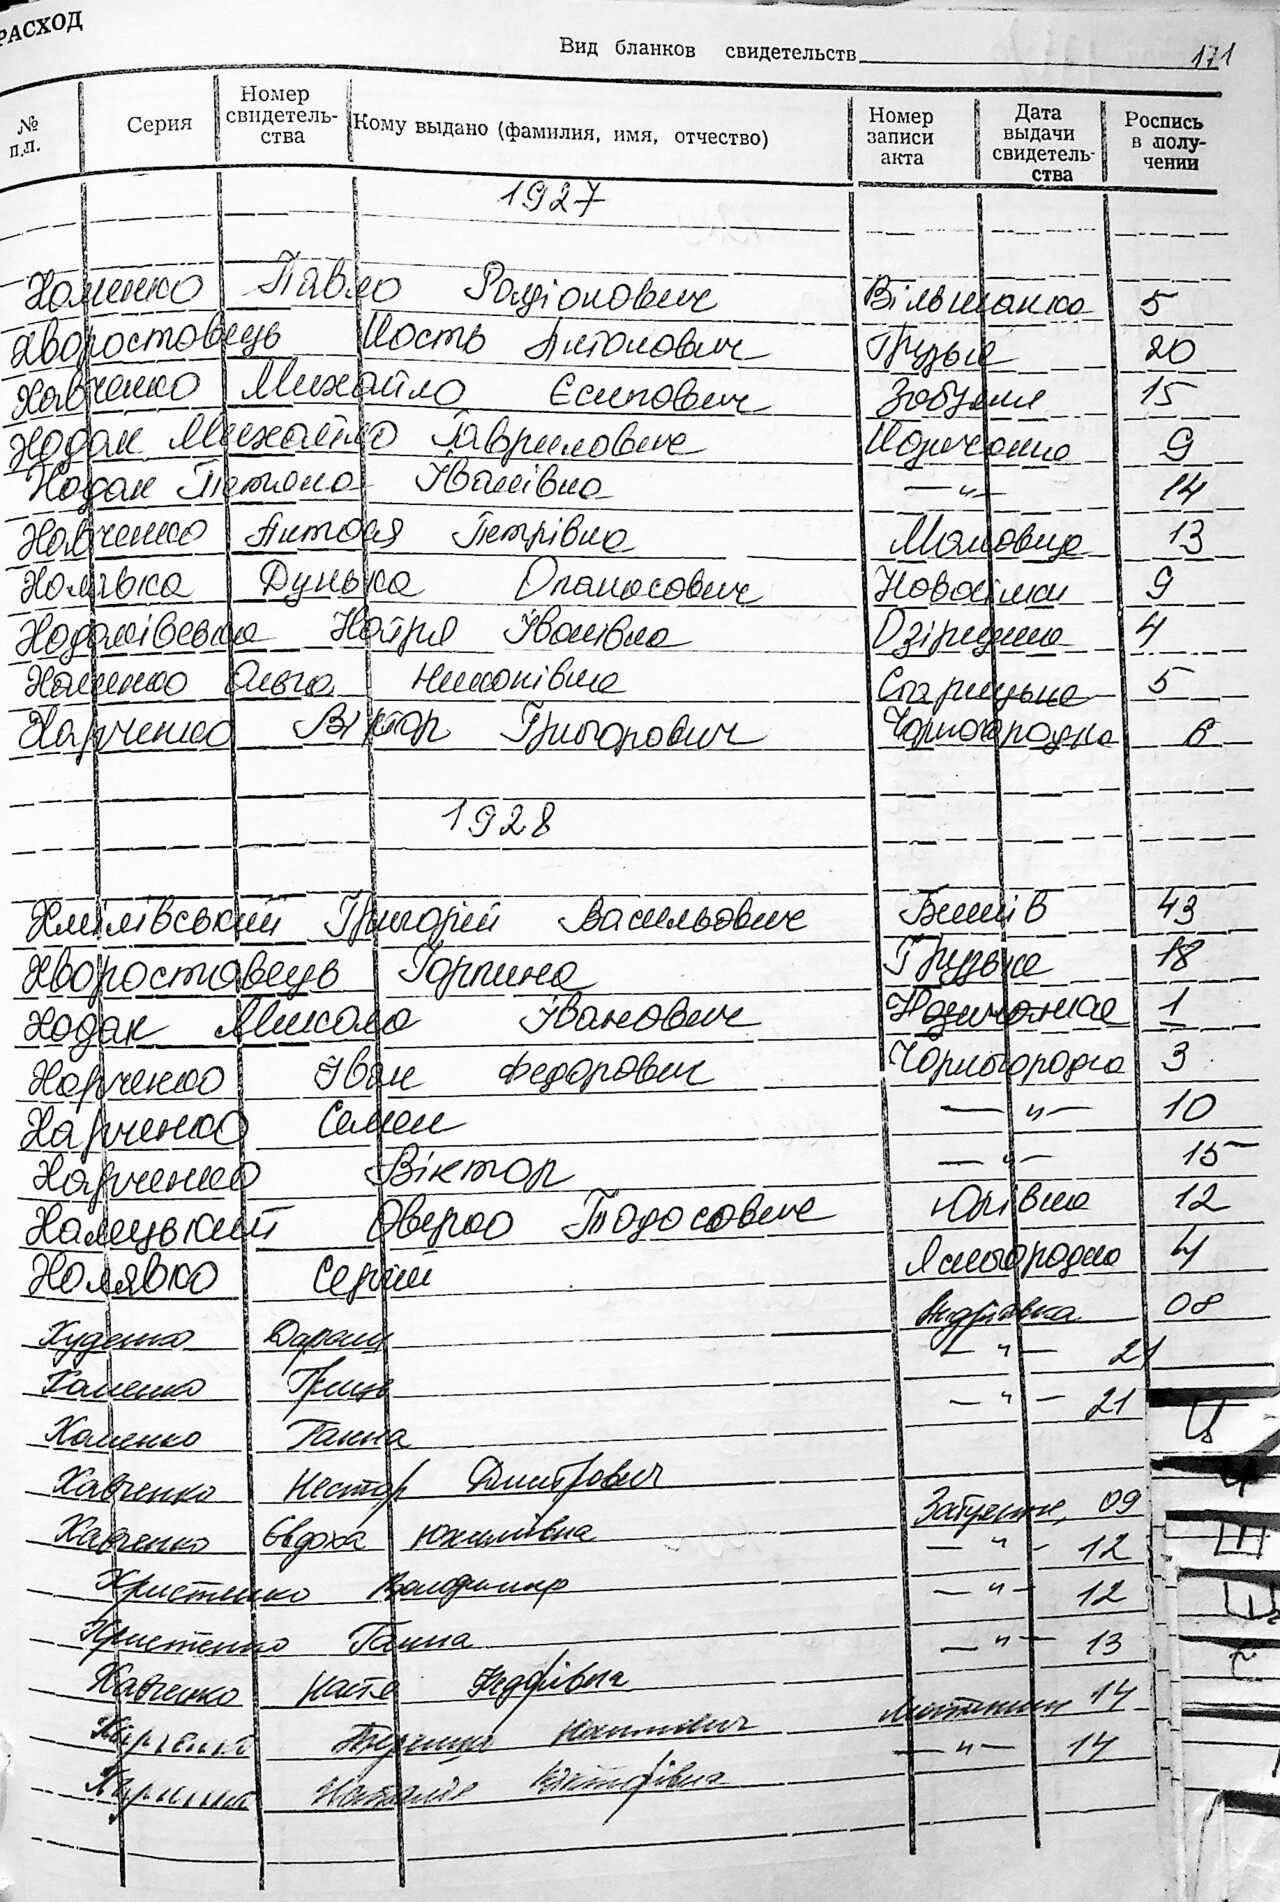 РАСХОД
Вид бланков свидетельств 171
№ п.п. Серия Номер свидетельства Кому выдано (фамилия, имя, отчество) Номер записи акта Дата выдачи свидетельства Роспись в получении
1927
Хоменко Павло Родіонович Вільшанка 5
Хворостовець Кость Антонович Грузьке 20
Хавченко Михайло Єсипович Забуяння 15
Ходак Михайло Гаврилович Козичанка 9
Ходак Тетяна Іванівна —"— 14
Хавченко Антося Петрівна Маковище 13
Холявка Дунька Опанасович Новосілки 9
Ходаківська Катря Іванівна Озірщина 4
Хоменко Ольга 5
Харченко Віктор Григорович Чорногородка 6
1928
Хмілівський Григорій Васильович Бишів 43
Хворостовець Горпина Грузьке 18
Ходак Микола Іванович Козичанка 1
Харченко Іван Федорович Чорногородка 3
Харченко Семен —"— 10
Харченко Віктор —"— 15
Халецький Оверко Тодосович Юрівка 12
Холявко Сергій Ясногородка 4
Худенко Андріївка 08
Хоменко Гриць —"— 21
Хоменко Ганна —"— 21
Хавченко Нестор Дмитрович
Хавченко Євдоха Юхимівна Забуяння, 09
Христенко Володимир —"— 12
Христенко Ганна —"— 12
Хавченко Настя Андріївна —"— 13
Харченко 14
Харченко Наталія Вікторівна —"— 14